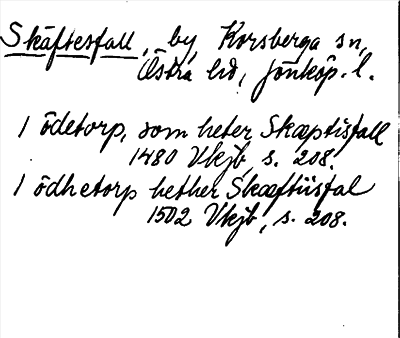 Skäftesfall, by, Korsberga sn,
Östra hd, Jönköp. l.
1 ödetorp, som heter Skæptisfall
1480 Vkjb, s. 208.
1 ödhetorp hether Skæftiisfal
1502 Vkjb, s. 208.